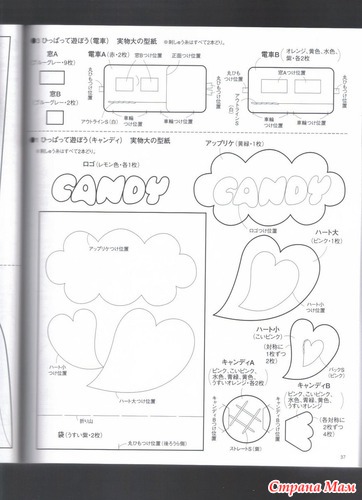 ひっぱって遊ぼう(電車) 実物大の型紙
※刺しゅう糸はすべて2本どり。
窓A
(ブルーグレー・9枚)
窓B
(ブルーグレー・2枚)
電車A(赤・2枚)
窓Bつけ位置
正面つけ位置
丸ひもつけ位置
アウトラインS(白)
車輪つけ位置
車輪つけ位置
電車B
オレンジ、黄色、水色、
紫・各2枚
窓Aつけ位置
丸ひもつけ位置
丸ひもつけ位置
アウトラインS(白)
車輪つけ位置
車輪つけ位置
ひっぱって遊ぼう(キャンディ) 実物大の型紙
※刺しゅう糸はすべて2本どり。
ロゴ(レモン色・各1枚)
CANDY
アップリケ(黄緑・1枚)
CANDY
ロゴつけ位置
アップリケつけ位置
ハート小
つけ位置
ハート大つけ位置
折り山
袋(うすい紫・2枚)
丸ひもつけ位置(後ろ側)
ハート大
(ピンク・1枚)
ハート小
つけ位置
ハート小
(こいピンク)
(対称に
1枚ずつ
2枚)
バックS
(ピンク)
キャンディA
(ピンク、こいピンク、
水色、黄緑、黄色、
うすいオレンジ・各2枚)
キャンディBつけ位置
キャンディBつけ位置
ストレートS(紫)
キャンディB
(ピンク、こいピンク、
水色、黄緑、黄色、
うすいオレンジ)
(各対称に
2枚ずつ
4枚)
37
Страна Мам